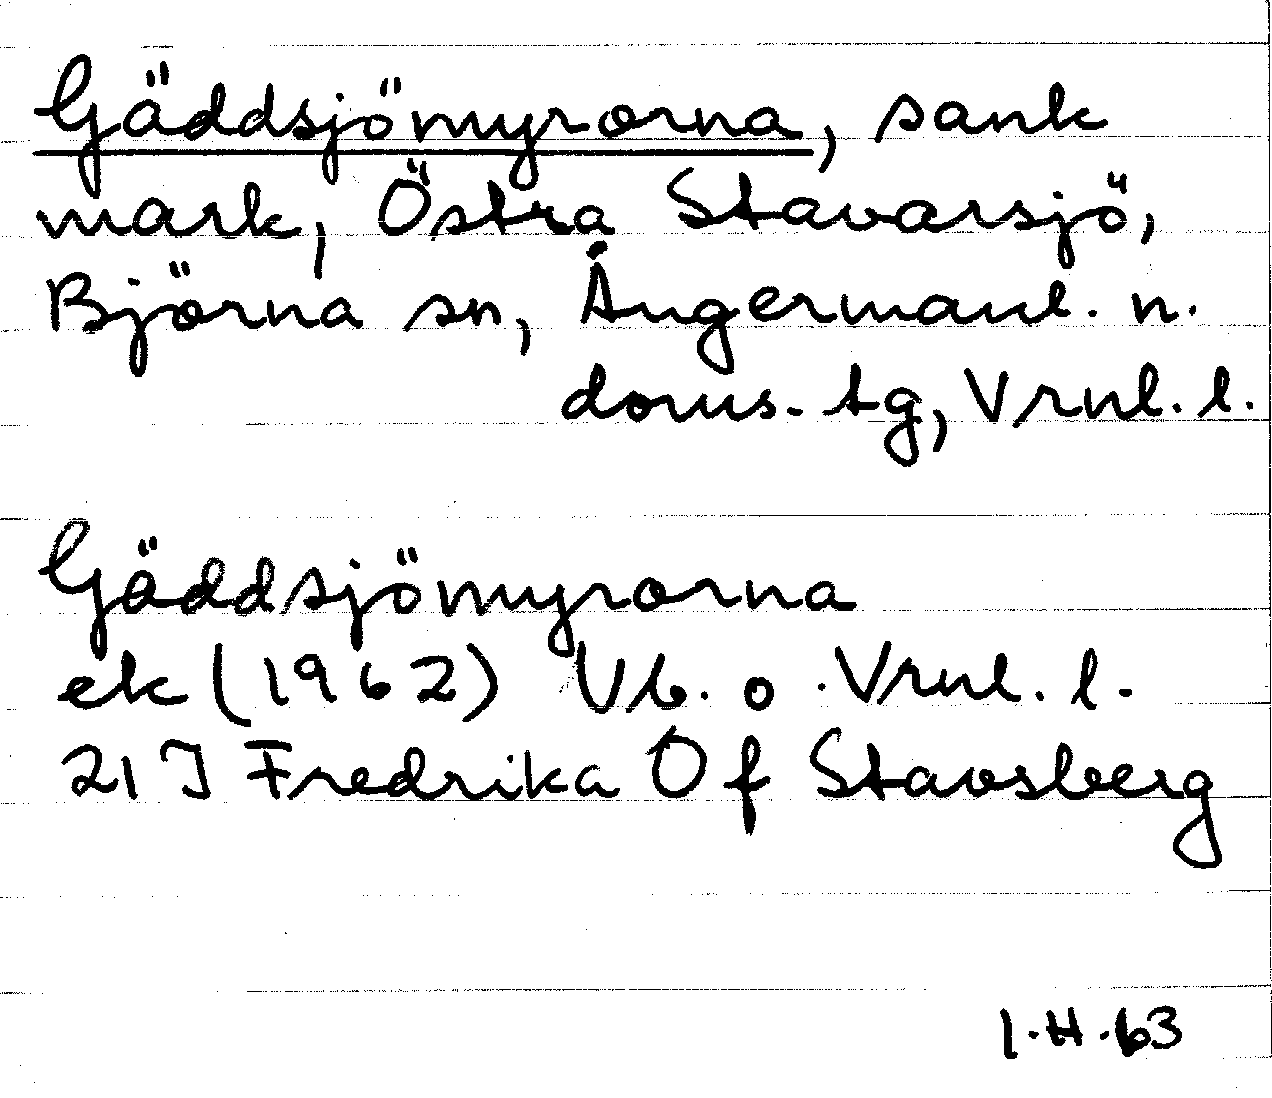 Gäddsjömyrorna, sank
mark, Östra Stavarsjö,
Björna sn, Ångermanl. n.
doms. tg, Vrnl. l.
Gäddsjömyrorna
ek (1962) Vb. o. Vrnl. l.
21 J Fredrika Of Stavsberg
1.H.63